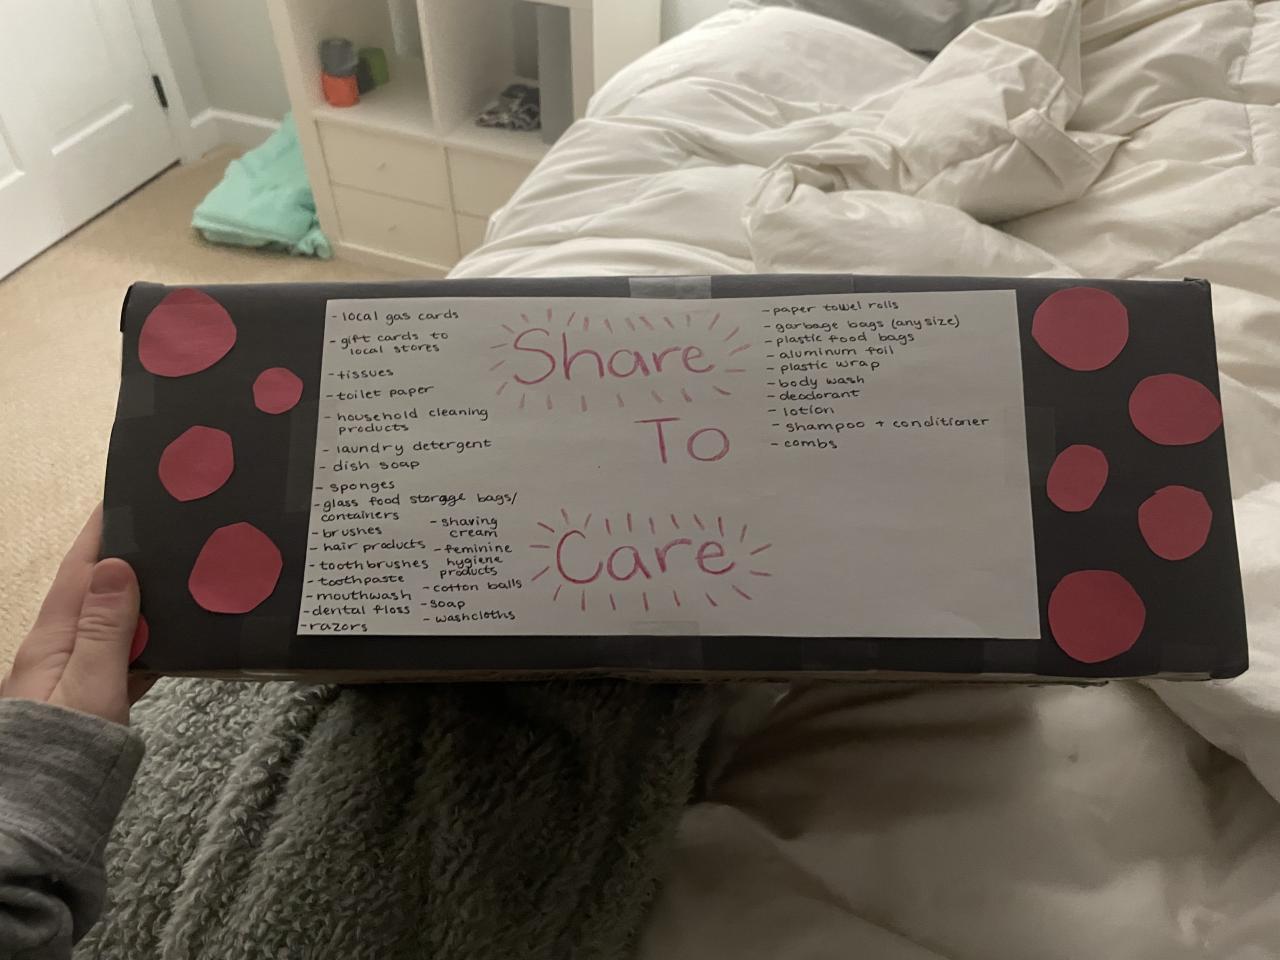 - local gas cards
- gift cards to
local stores
- tissues
- toilet paper
- household cleaning
products
- laundry detergent
- dish soap
- sponges
- glass food storage bags/
containers
- brushes
- hair products
- toothbrushes
- toothpaste
- mouthwash
- dental floss
- razors
- shaving
cream
- feminine
hygiene
products
- cotton balls
- soap
- washcloths
Share
To
Care
- paper towel rolls
- garbage bags (any size)
- plastic food bags
- aluminum foil
- plastic wrap
- body wash
- deodorant
- lotion
- shampoo + conditioner
- combs